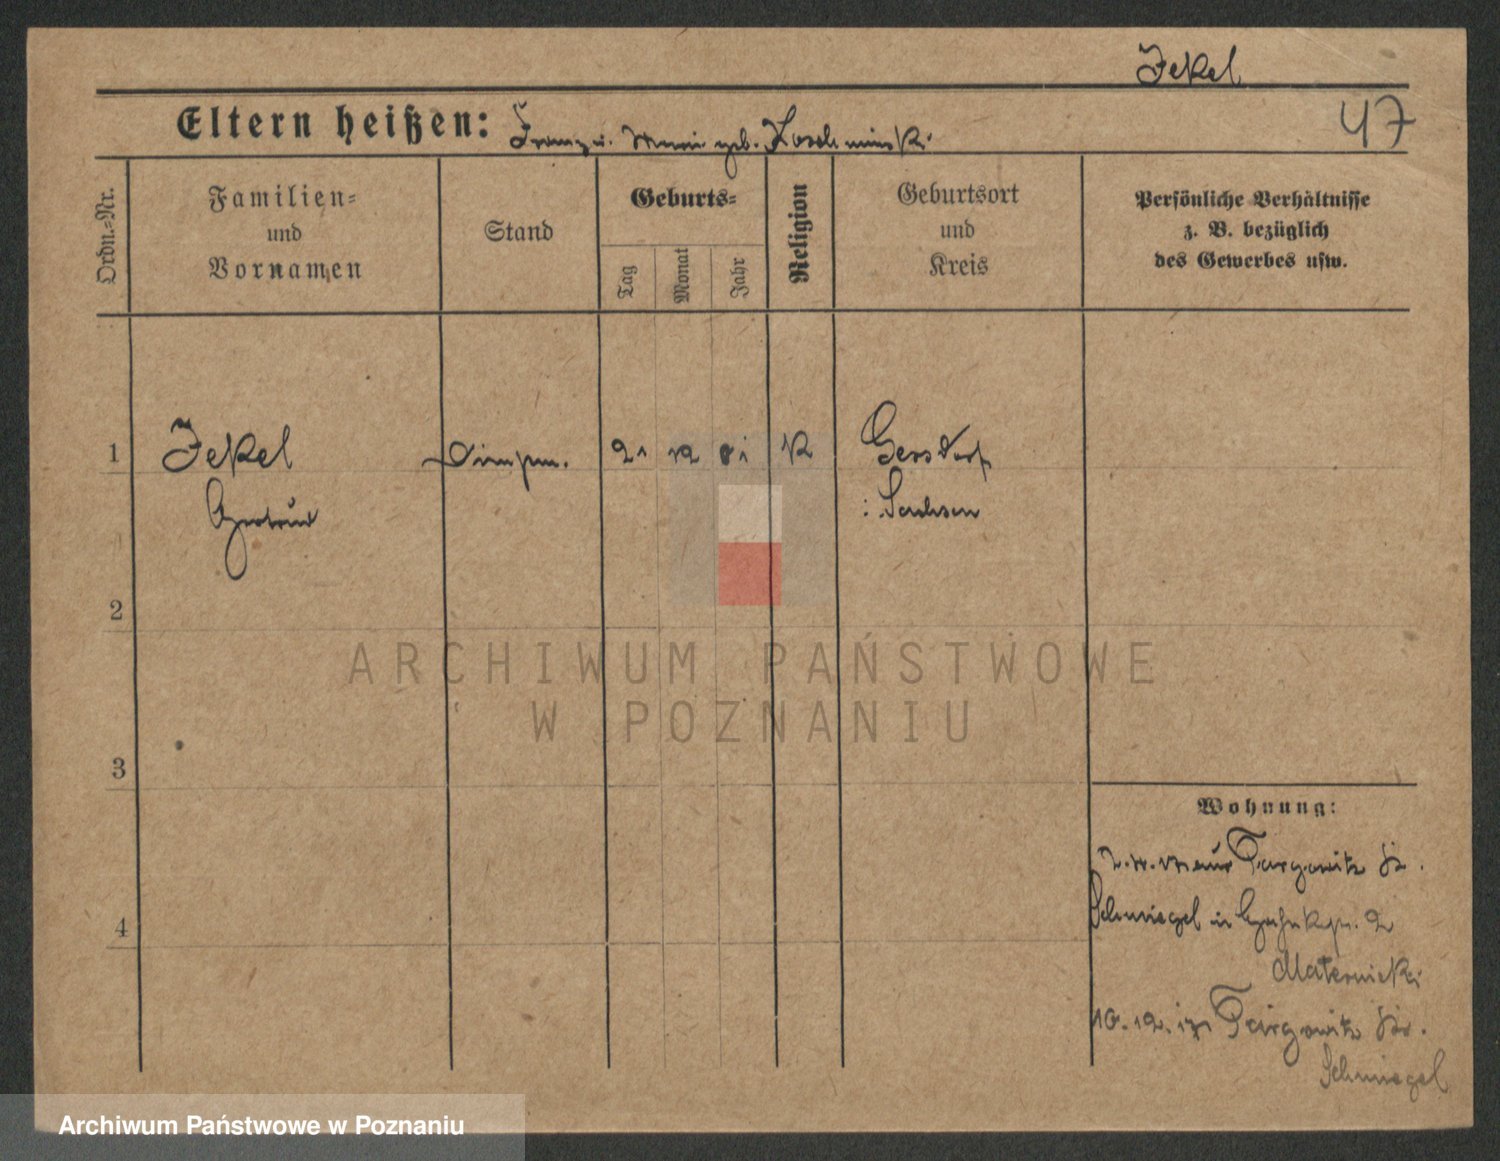 Jekel
47
Eltern heißen: Franz u. Marie geb. Koschminski
Ordn.=Nr.
Familien=
und
Vornamen
Stand
Geburts=
Tag
Monat
Jahr
Religion
Geburtsort
und
Kreis
Persönliche Verhältnisse
z. B. bezüglich
des Gewerbes usw.
1
Jekel
21 12 81 K
Gersdorf
Gertrud
i. Sachsen
2
3
Wohnung:
Targowitz Kr.
4
Schmiegel in 2
Maternicki
10.12. Targowitz Kr.
Schmiegel
ARCHIWUM PAŃSTWOWE
W POZNANIU
Archiwum Państwowe w Poznaniu